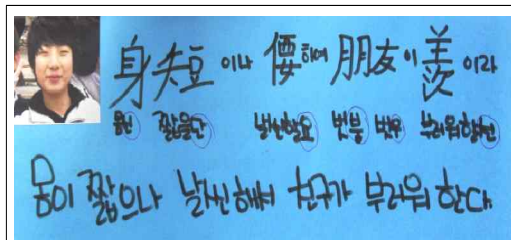 身短이나 優하여 朋友이 羨이라
몸신 짧을단 날씬할요 벗붕 벗우 부러워할선
몸이 짧으나 날씬해서 친구가 부러워 한다.